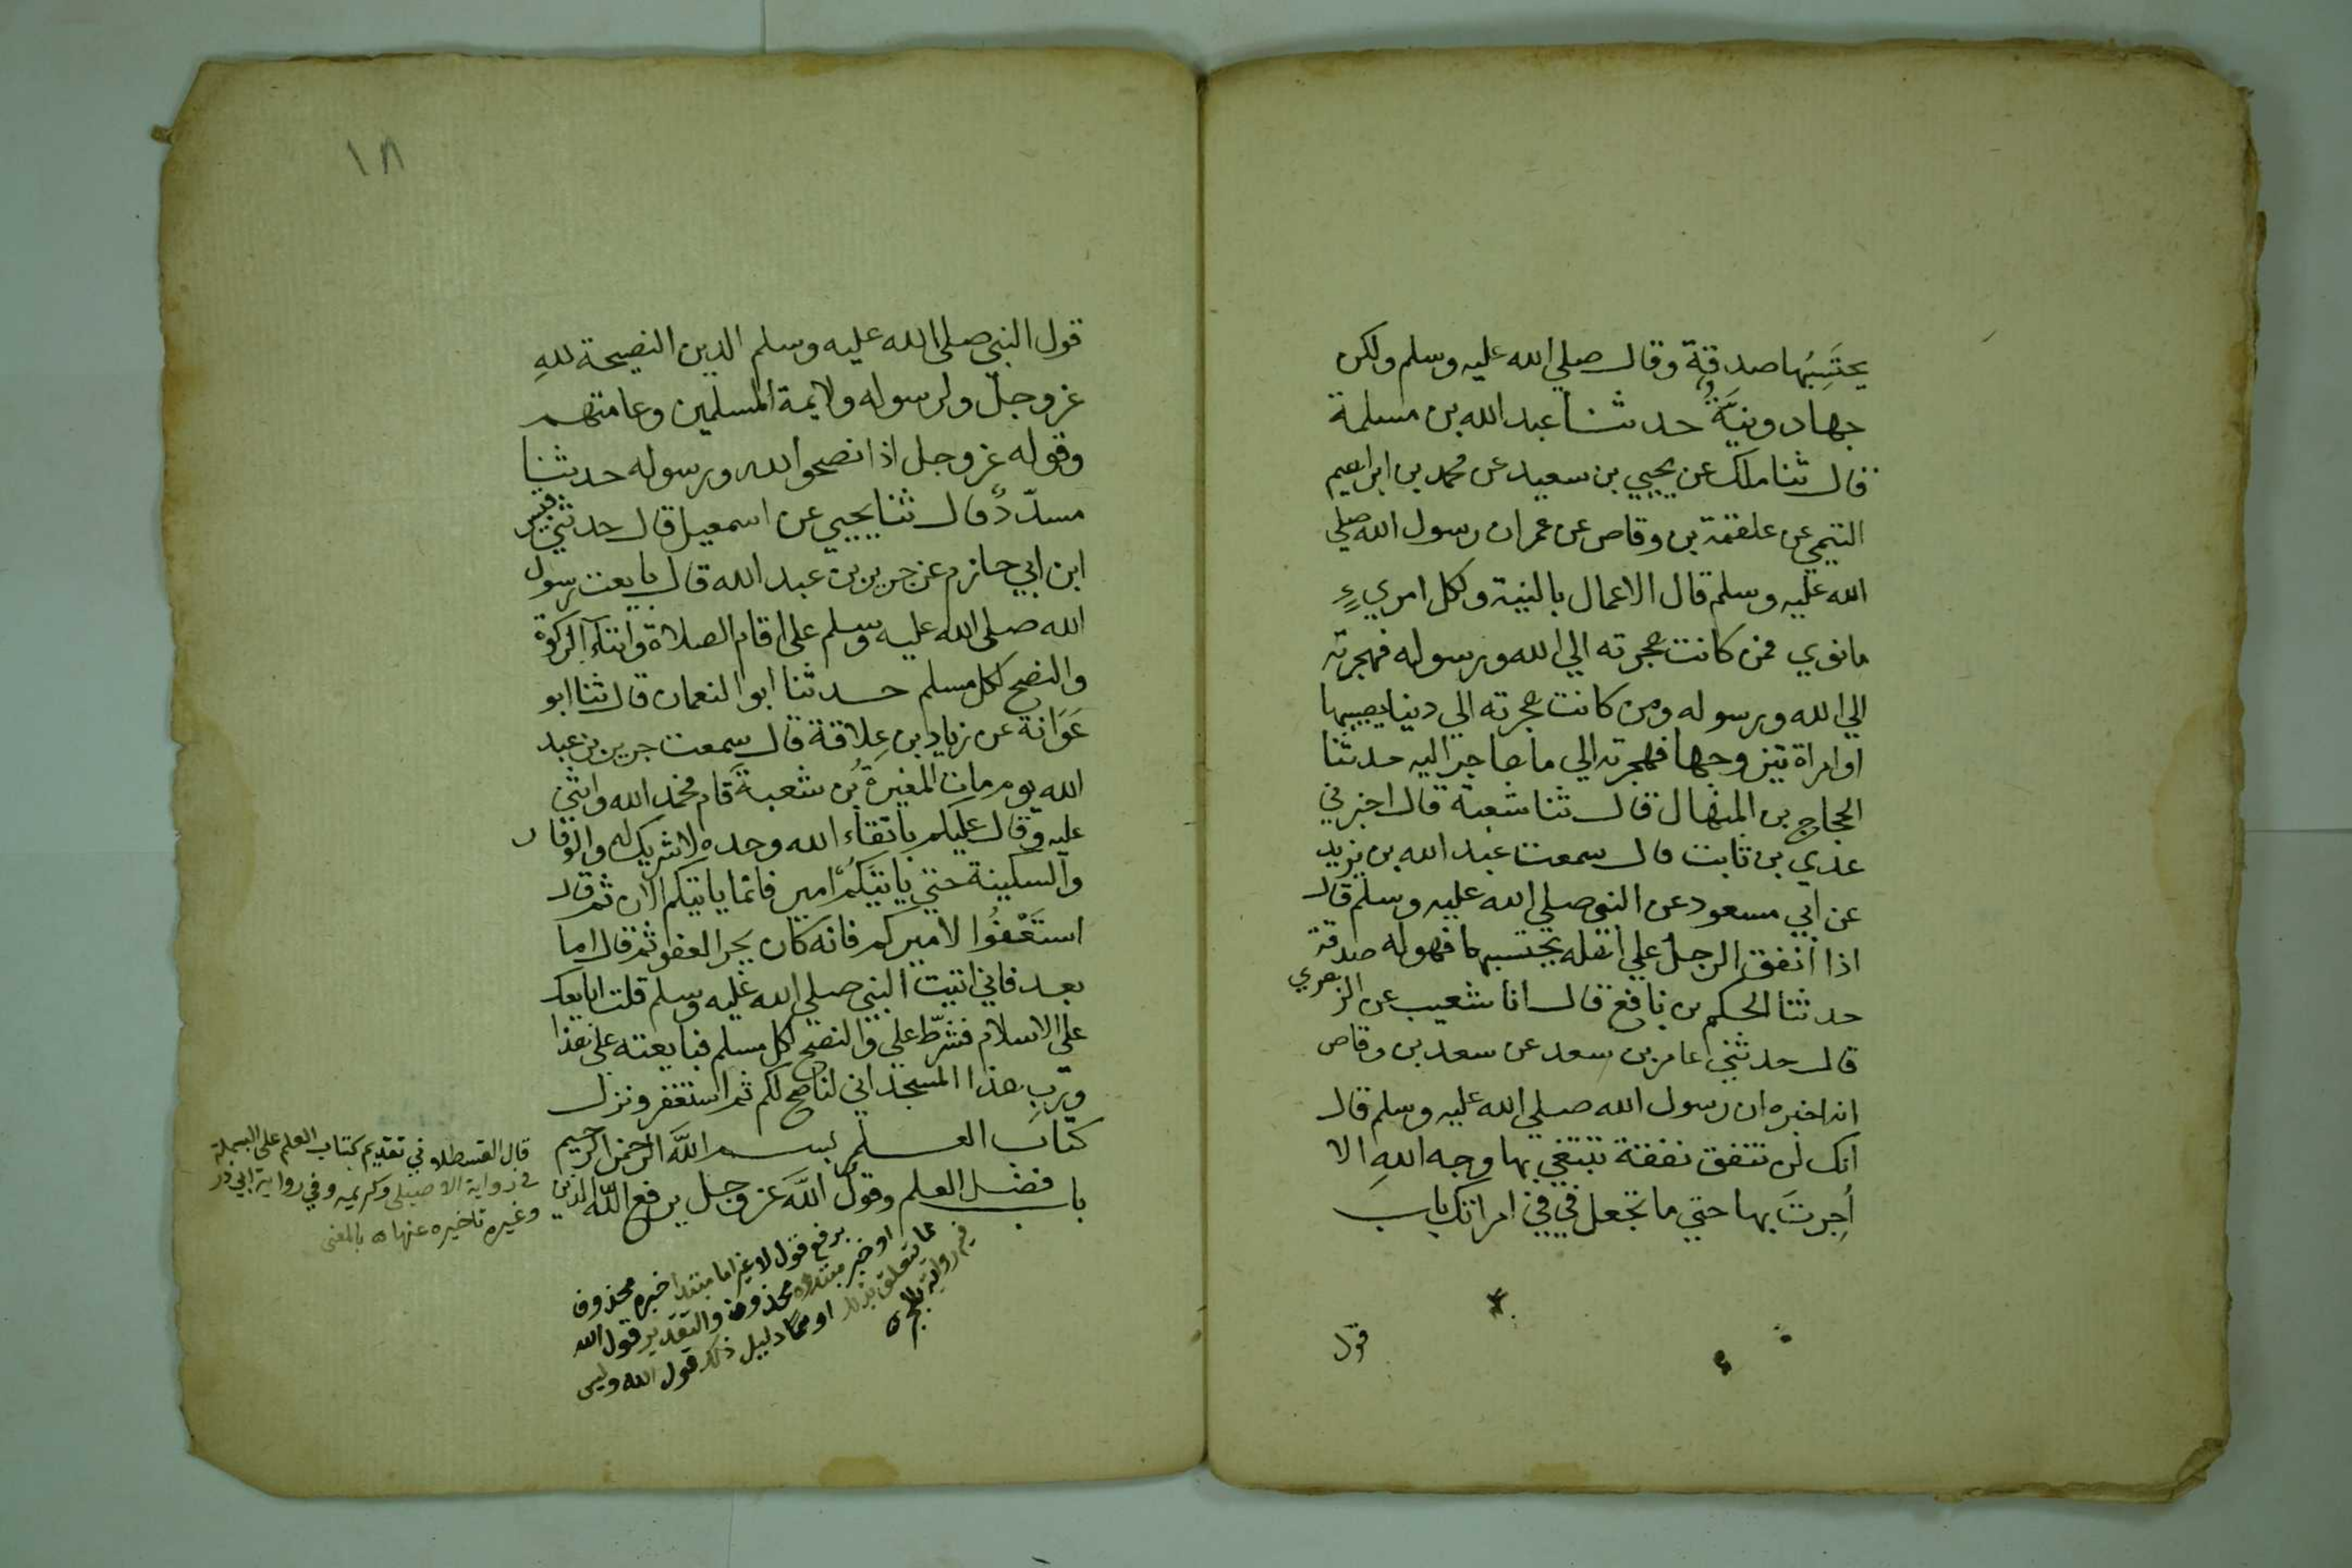 يحتَسِبُها صدقة وقال صلي الله عليه وسلم ولكن
جهاد ونيَّةٌ حدثنا عبد الله بن مسلمة
قال ثنا ملك عن يحيي بن سعيد عن محمد بن ابراهيم
التيمي عن علقمة بن وقاص عن عمر ان رسول الله صلي
الله عليه وسلم قال الاعمال بالنية ولكل امريءٍ
ما نوي فمن كانت هجرته الي الله ورسوله فهجرته
الي الله ورسوله ومن كانت هجرته الي دنيا يصيبها
او امراة يتزوجها فهجرته الي ما هاجر اليه حدثنا
الحجاج بن المنهال قال ثنا شعبة قال اخبرني
عدي بن ثابت قال سمعت عبد الله بن يزيد
عن ابي مسعود عن النبي صلي الله عليه وسلم قال
اذا انفق الرجل علي اهله يحتسبها فهو له صدقة
حدثنا الحكم بن نافع قال انا شعيب عن الزهري
قال حدثني عامر بن سعد عن سعد بن وقاص
انه اخبره ان رسول الله صلي الله عليه وسلم قال
انك لن تنفق نفقة تبتغي بها وجه اللهِ الا
اُجِرتَ بها حتي ما تجعل في في امراتك باب
قول
١٨
قول النبي صلى الله عليه وسلم الدين النصيحة للهِ
عز وجلّ ولرسوله ولايمة المسلمين وعامتهم
وقوله عز وجل اذا نصحوا لله ورسوله حدثنا
مسدّدٌ قال ثنا يحيي عن اسمعيل قال حدثني قيس
ابن ابي حازم عن جرير بن عبد الله قال بايعت رسول
الله صلى الله عليه وسلم على اقام الصلاة وايتآء الزكوة
والنصح لكل مسلم حدثنا ابو النعمان قال ثنا ابو
عَوَانة عن زياد بن عِلاقة قال سمعت جرير بن عبد
الله يوم مات المغيرةُ بن شعبةَ قام فحمد الله واثني
عليه وقال عليكم باتقاء الله وحده لا شريك له والوقار
والسكينة حتي ياتيَكم امير فانما ياتيكم الان ثم قال
استَعْفُوا لاميركم فانه كان يحب العفو ثم قال اما
بعد فاني اتيت النبي صلي الله عليه وسلم قلت ابايعك
علي الاسلام فشرّط علي والنصح لكل مسلم فبايعته علي هذا
وربِّ هذا المسجد اني لناصح لكم ثم استغفر ونزل
كتاب العلم بسم الله الرحمن الرحيم
باب فضل العلم وقول اللهَ عز وجل يرفع الله الذين
قال القسطلاني تقديم كتاب العلم على البسملة
في رواية الاصيلي وكريمه وفي رواية ابي ذر
وغيره تاخيره عنها ه بالمعنى
برفع قول لا غير اما مبتدا خبره محذوف
او خبر مبتداه محذوف والتقدير قول الله
مما يتعلق بذلك او مما دليل ذلك قول الله وليس
فيه رواية بالجر ه